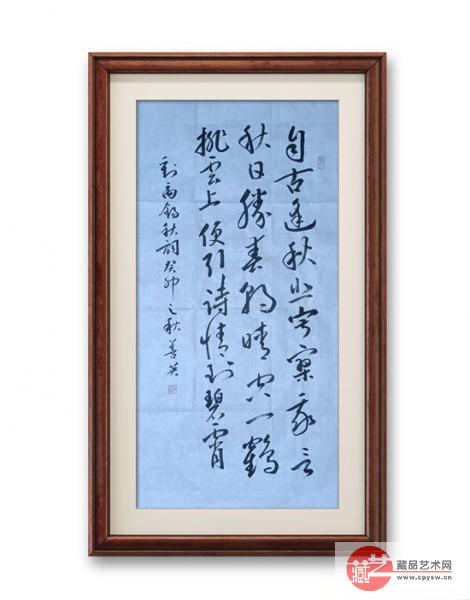 自古逢秋悲寂寥我言
秋日勝春朝晴空一鶴
排雲上便引詩情到碧霄
劉禹錫秋詞癸卯之秋善英
藏艺
藏品艺术网
www.cpysw.cn